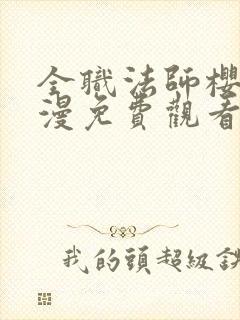 全職法師櫻
漫免費觀看
我的頭超級